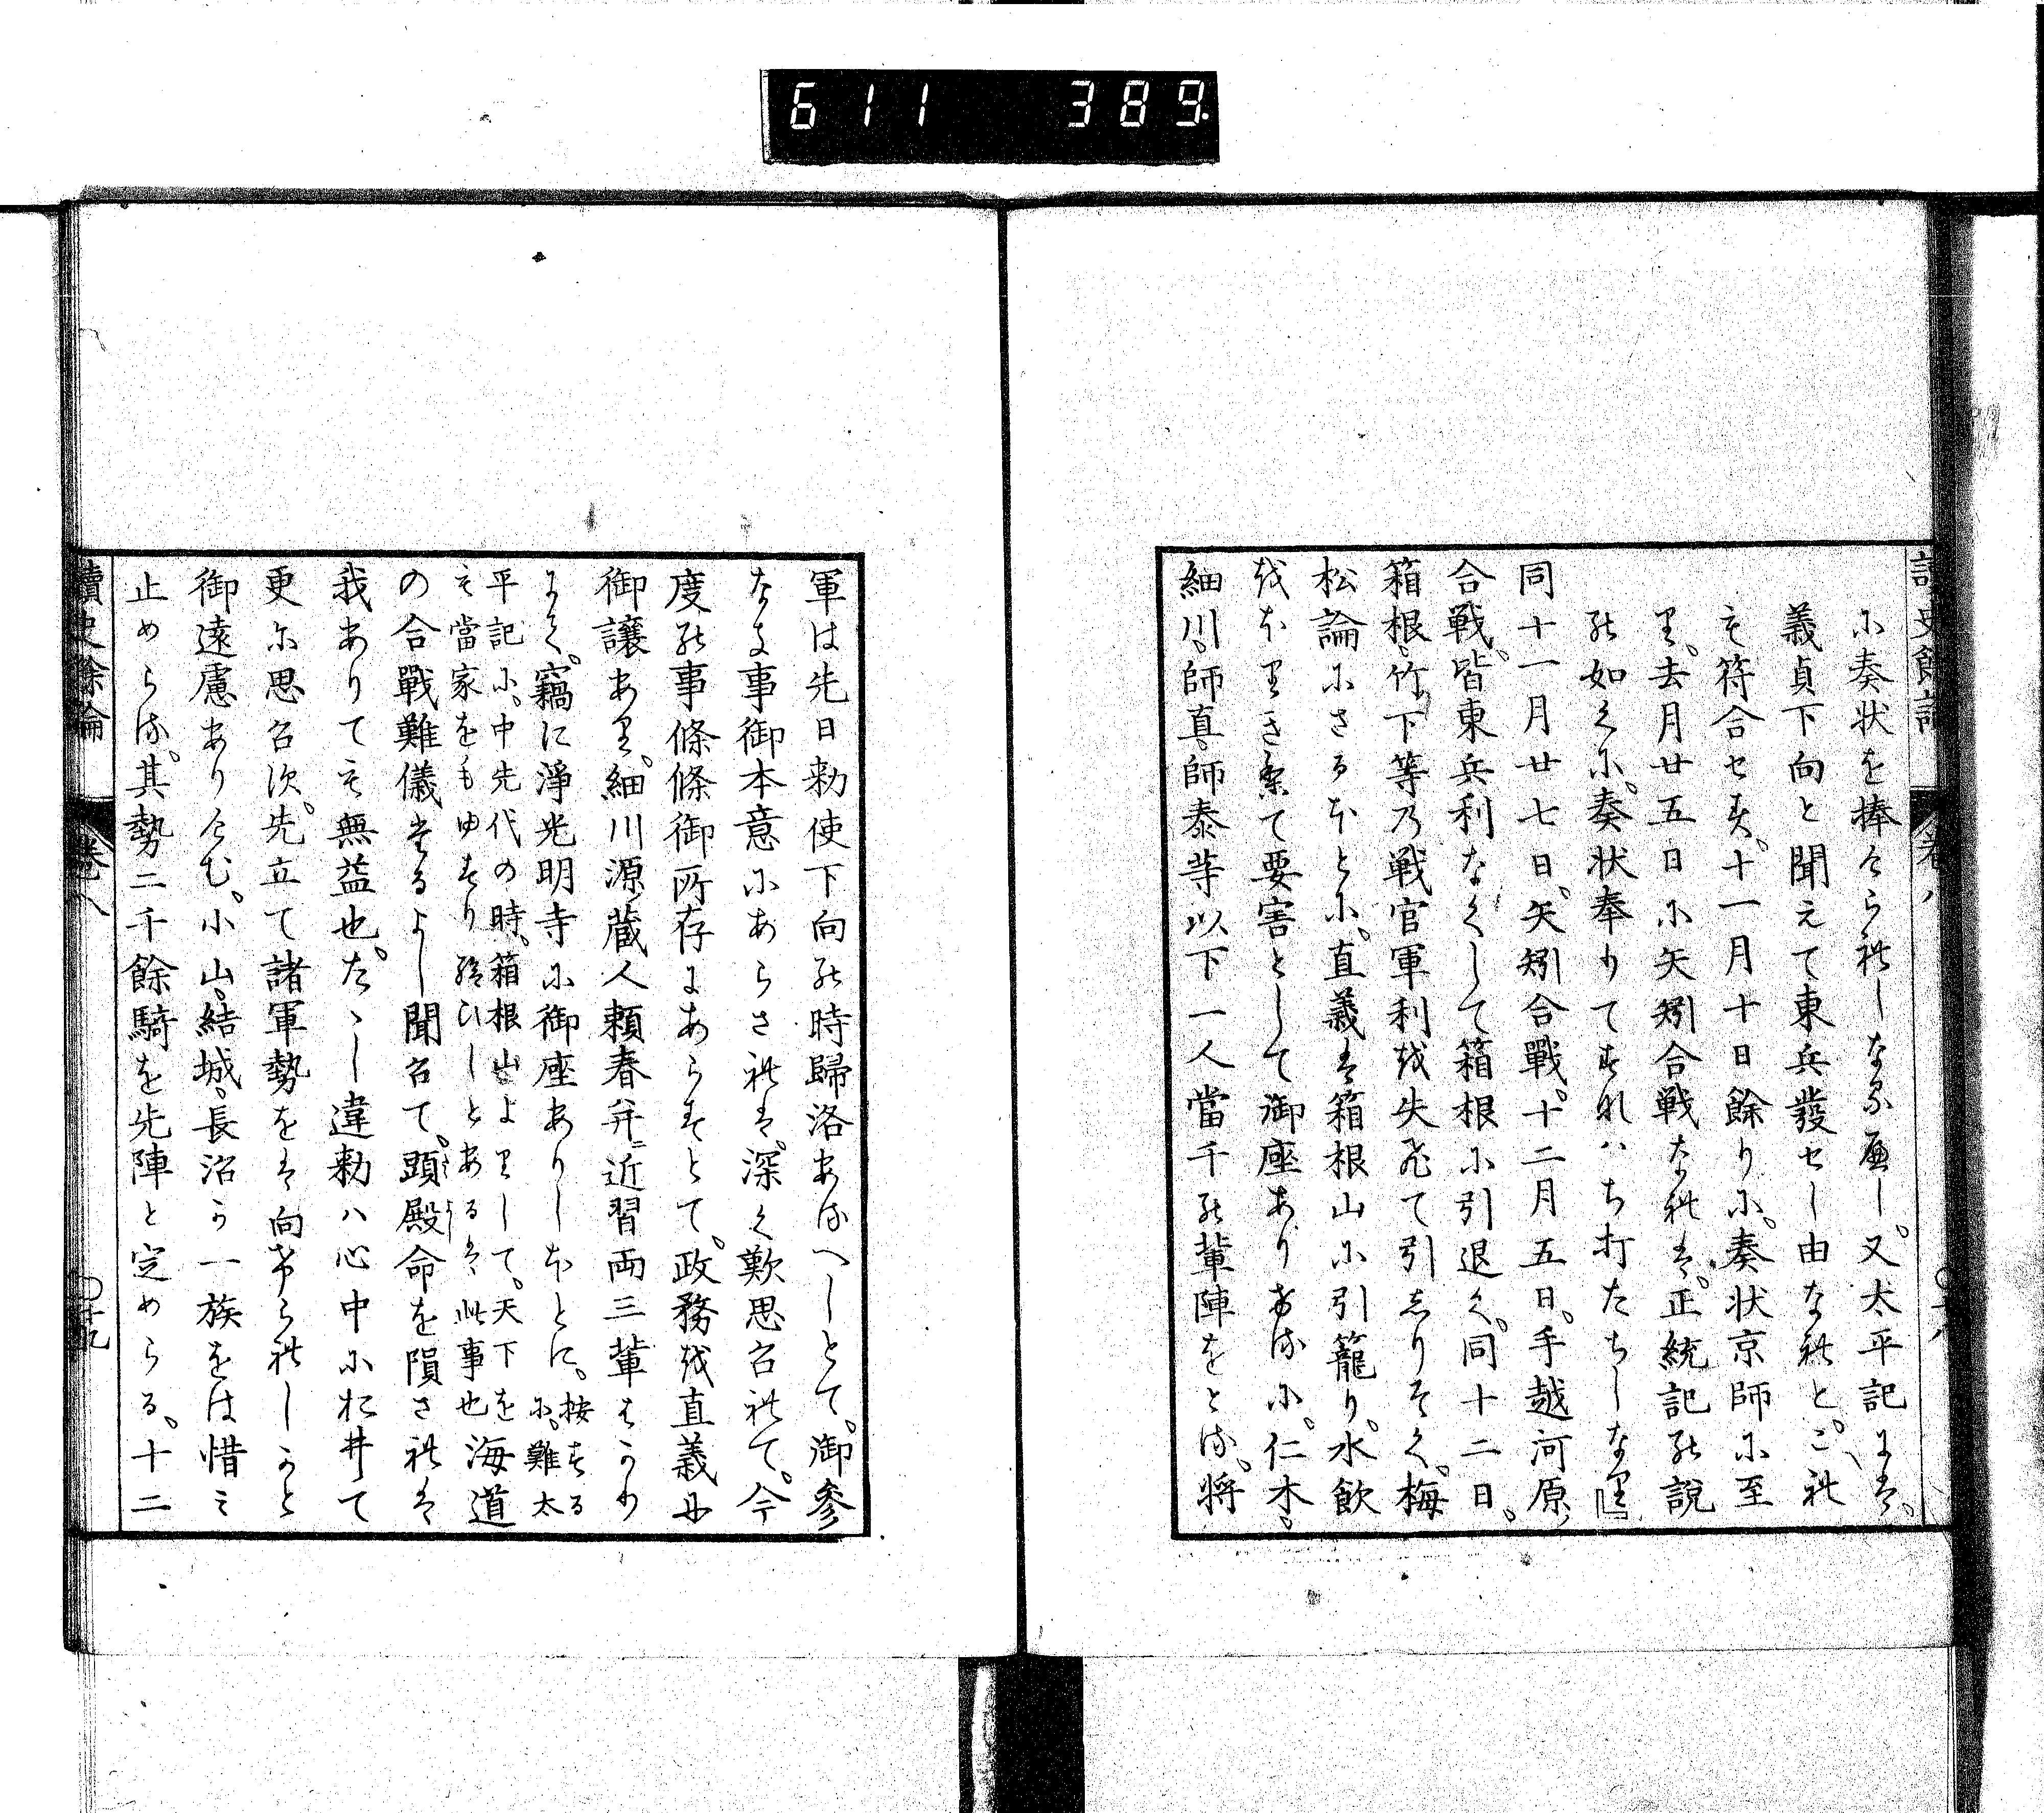 611 389
讀史餘論 卷八 〇十八
に奏状を捧けられしなるへし。又太平記には。
義貞下向と聞えて東兵發セし由なれと。これ
も符合セす。十一月十日餘りに。奏状京師に至
り。去月廿五日に矢矧合戦なれは。正統記の説
の如くに。奏状奉りてすれハち打たちしなり』
同十一月廿七日。矢矧合戰。十二月五日。手越河原
合戰。皆東兵利なくして箱根に引退く。同十二日。
箱根。竹下等乃戦官軍利を失ひて引しりそく。梅
松論にさるほとに。直義は箱根山に引籠り。水飲
をほりきりて要害として御座ありけるに。仁木。
細川。師直。師泰等以下一人當千の輩陣をとる。将
軍は先日勅使下向の時歸洛あるへしとて。御参
なき事御本意にあらされは。深く歎思召れて。今
度の事條條御所存にあらすとて。政務を直義に
御譲あり。細川源蔵人頼春并ニ近習両三輩はかり
にて。竊に淨光明寺に御座ありしほとに。按する
に。難太
平記に。中先代の時。箱根山よりして。天下を
も當家をもゆつり給ひしとあるは此事也
海道
の合戰難儀たるよし聞召て。頭殿命を隕されは
我ありても無益也。たゝし違勅ハ心中におゐて
更に思召次。先立て諸軍勢をは向けられしかと
御遠慮ありけむ。小山。結城。長沼か一族をは惜ミ
止めらる。其勢二千餘騎を先陣と定めらる。十二
讀史餘論 卷八 〇十九